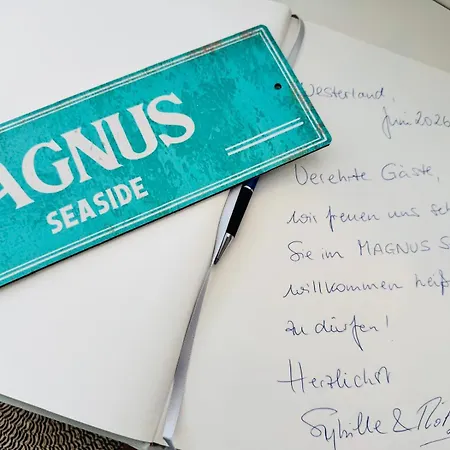 AGNUS
SEASIDE
Westerland,
Juni 2026
Verehrte Gäste,
wir freuen uns seh
Sie im MAGNUS S
willkommen heiß
zu dürfen!
Herzlichst
Sybille &